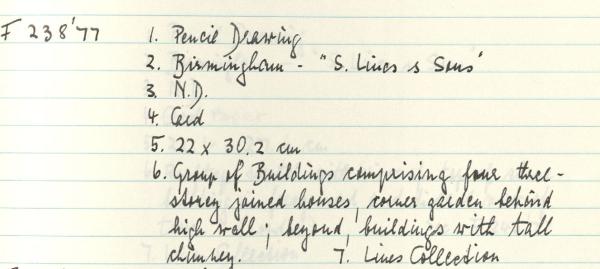 F 238'77 1. Pencil Drawing
2. Birmingham - "S. Lines & Sons"
3. N.D.
4. Card
5. 22 x 30.2 cm
6. Group of Buildings comprising four three-
storey joined houses, corner garden behind
high wall; beyond, buildings with tall
chimney. 7. Lines Collection